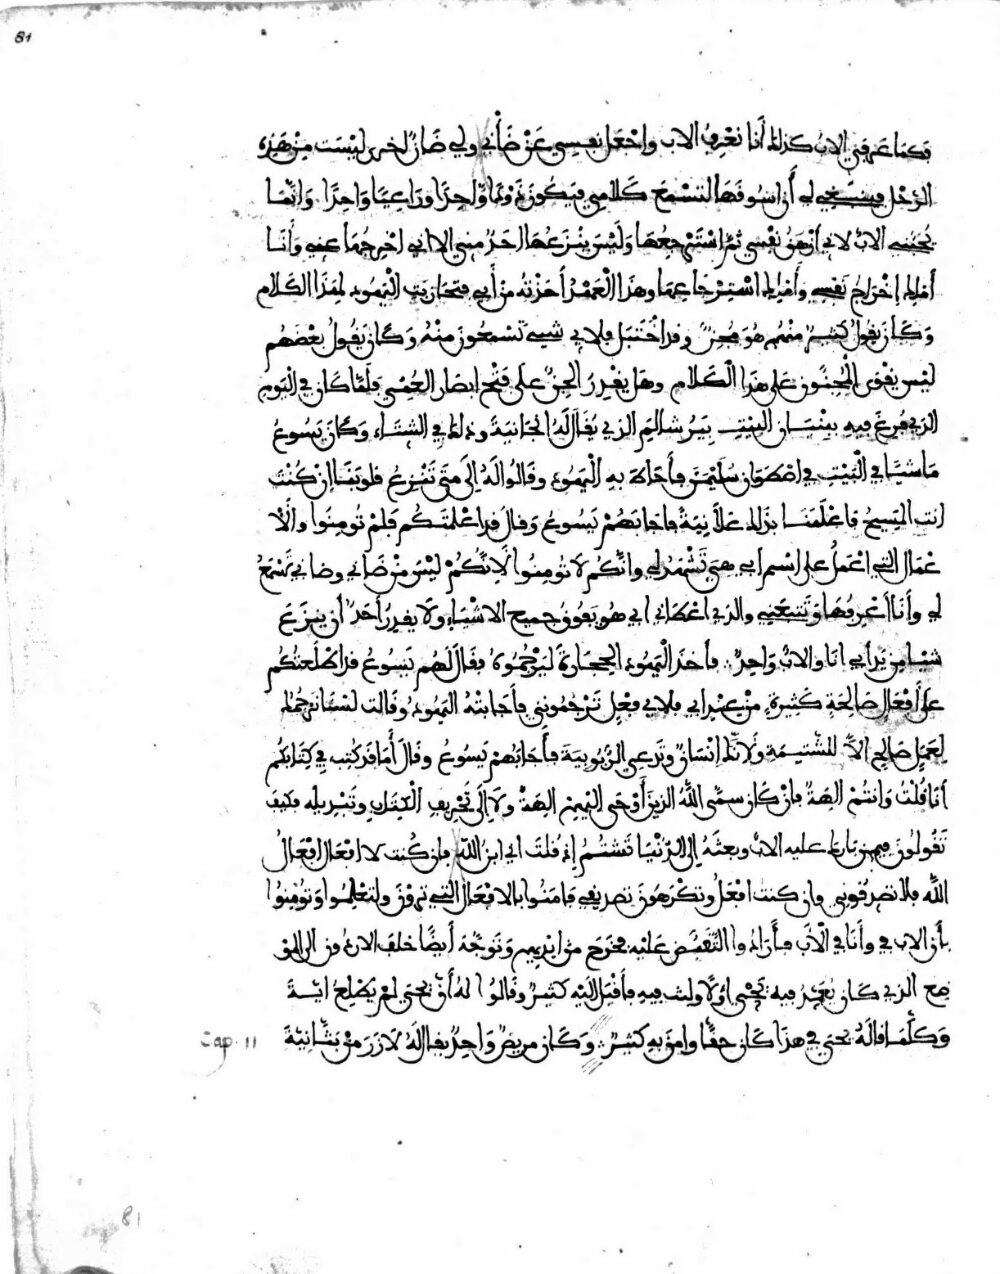 81
فكما عرفني الاب كذلك أنا نعرف الاب واجعل نفسي عن ضأني ولي ضان اخرى ليست من هذه
الزحل فينبغي لي أن اسوقها لتسمع كلامي فيكون ذودا واحدا وراعيا واحدا وانما
يحبني الاب لاني أزهق نفسي ثم استرجعها وليس ينزعها احد مني الا اني اخرجها عني وأنا
أملك إخراج نفسي وأملك استرجاعها وهذا العهد أخذته من أبي فتحازبت اليهود لهذا الكلام
وكان يقول كثير منهم هو مجن وقد اختبل فلاي شيء تسمعون منه وكان يقول بعضهم
ليس يقوى المجنون على هذا الكلام وهل يقدر الجن على فتح ابصار العمي فلما كان في اليوم
الذي فرغ فيه بنيان البيت ببرشالم الذي يقال له انجانية وذلك في الشتاء وكان يسوع
ماشيا في البيت في اصطوان سليمن فأحاط به اليهود وقالوا له إلى متى تنزع قلوبنا إن كنت
انت المسيح فاعلمنا بذلك علانية فأجابهم يسوع وقال قد اعلمتكم فلم تومنوا والا
عمال التي اعمل على اسم ابي هي تشهد لي وانكم لا تومنوا لانكم ليس من ضاني وضاني تسمع
لي وأنا أعرفها وتتبعني والذي اعطاني ابي هو يفوق جميع الاشياء ولا يقدر أحد أن ينزع
شيا من يد أبي انا والاب واحد فأخذ اليهود الحجارة ليرجموه فقال لهم يسوع قد اطلعتكم
على أفعال صالحة كثيرة من عند ابي فلاي فعل ترجموني فأجابته اليهود وقالت لسنا نرجمك
لعمل صالح الا للشتيمة ولانك إنسان وتدعي الربوبية فأجابهم يسوع وقال أما قد كتب في كتابكم
أنا قلت وانتم الهة فإن كان سمى الله الذين أوحى اليهم الهة ولا إلى تحريف الكتاب وتبديله فكيف
تقولون فيمن بارك عليه الاب وبعثه إلى الدنيا تشتم إذ قلت اني ابن الله فإن كنت لا افعل افعال
الله فلا تصدقوني وان كنت افعل وتكرهون تصديقي فامنوا بالافعال التي ترون ولتعلموا وتومنوا
بأن الاب في وأنا في الاب فأرادوا التقبض عليه فخرج من ايديهم وتوجه أيضا خلف الاردن الى المو
ضع الذي كان يعمد فيه يحيى اولا ولبث فيه فأقبل اليه كثير وقالوا له أن يحيى لم يطلع اية
وكلما قاله يحيى في هذا كان حقا وامن به كثير وكان مريض واحد يقال له لازر من بثانية
Cap. 11
81